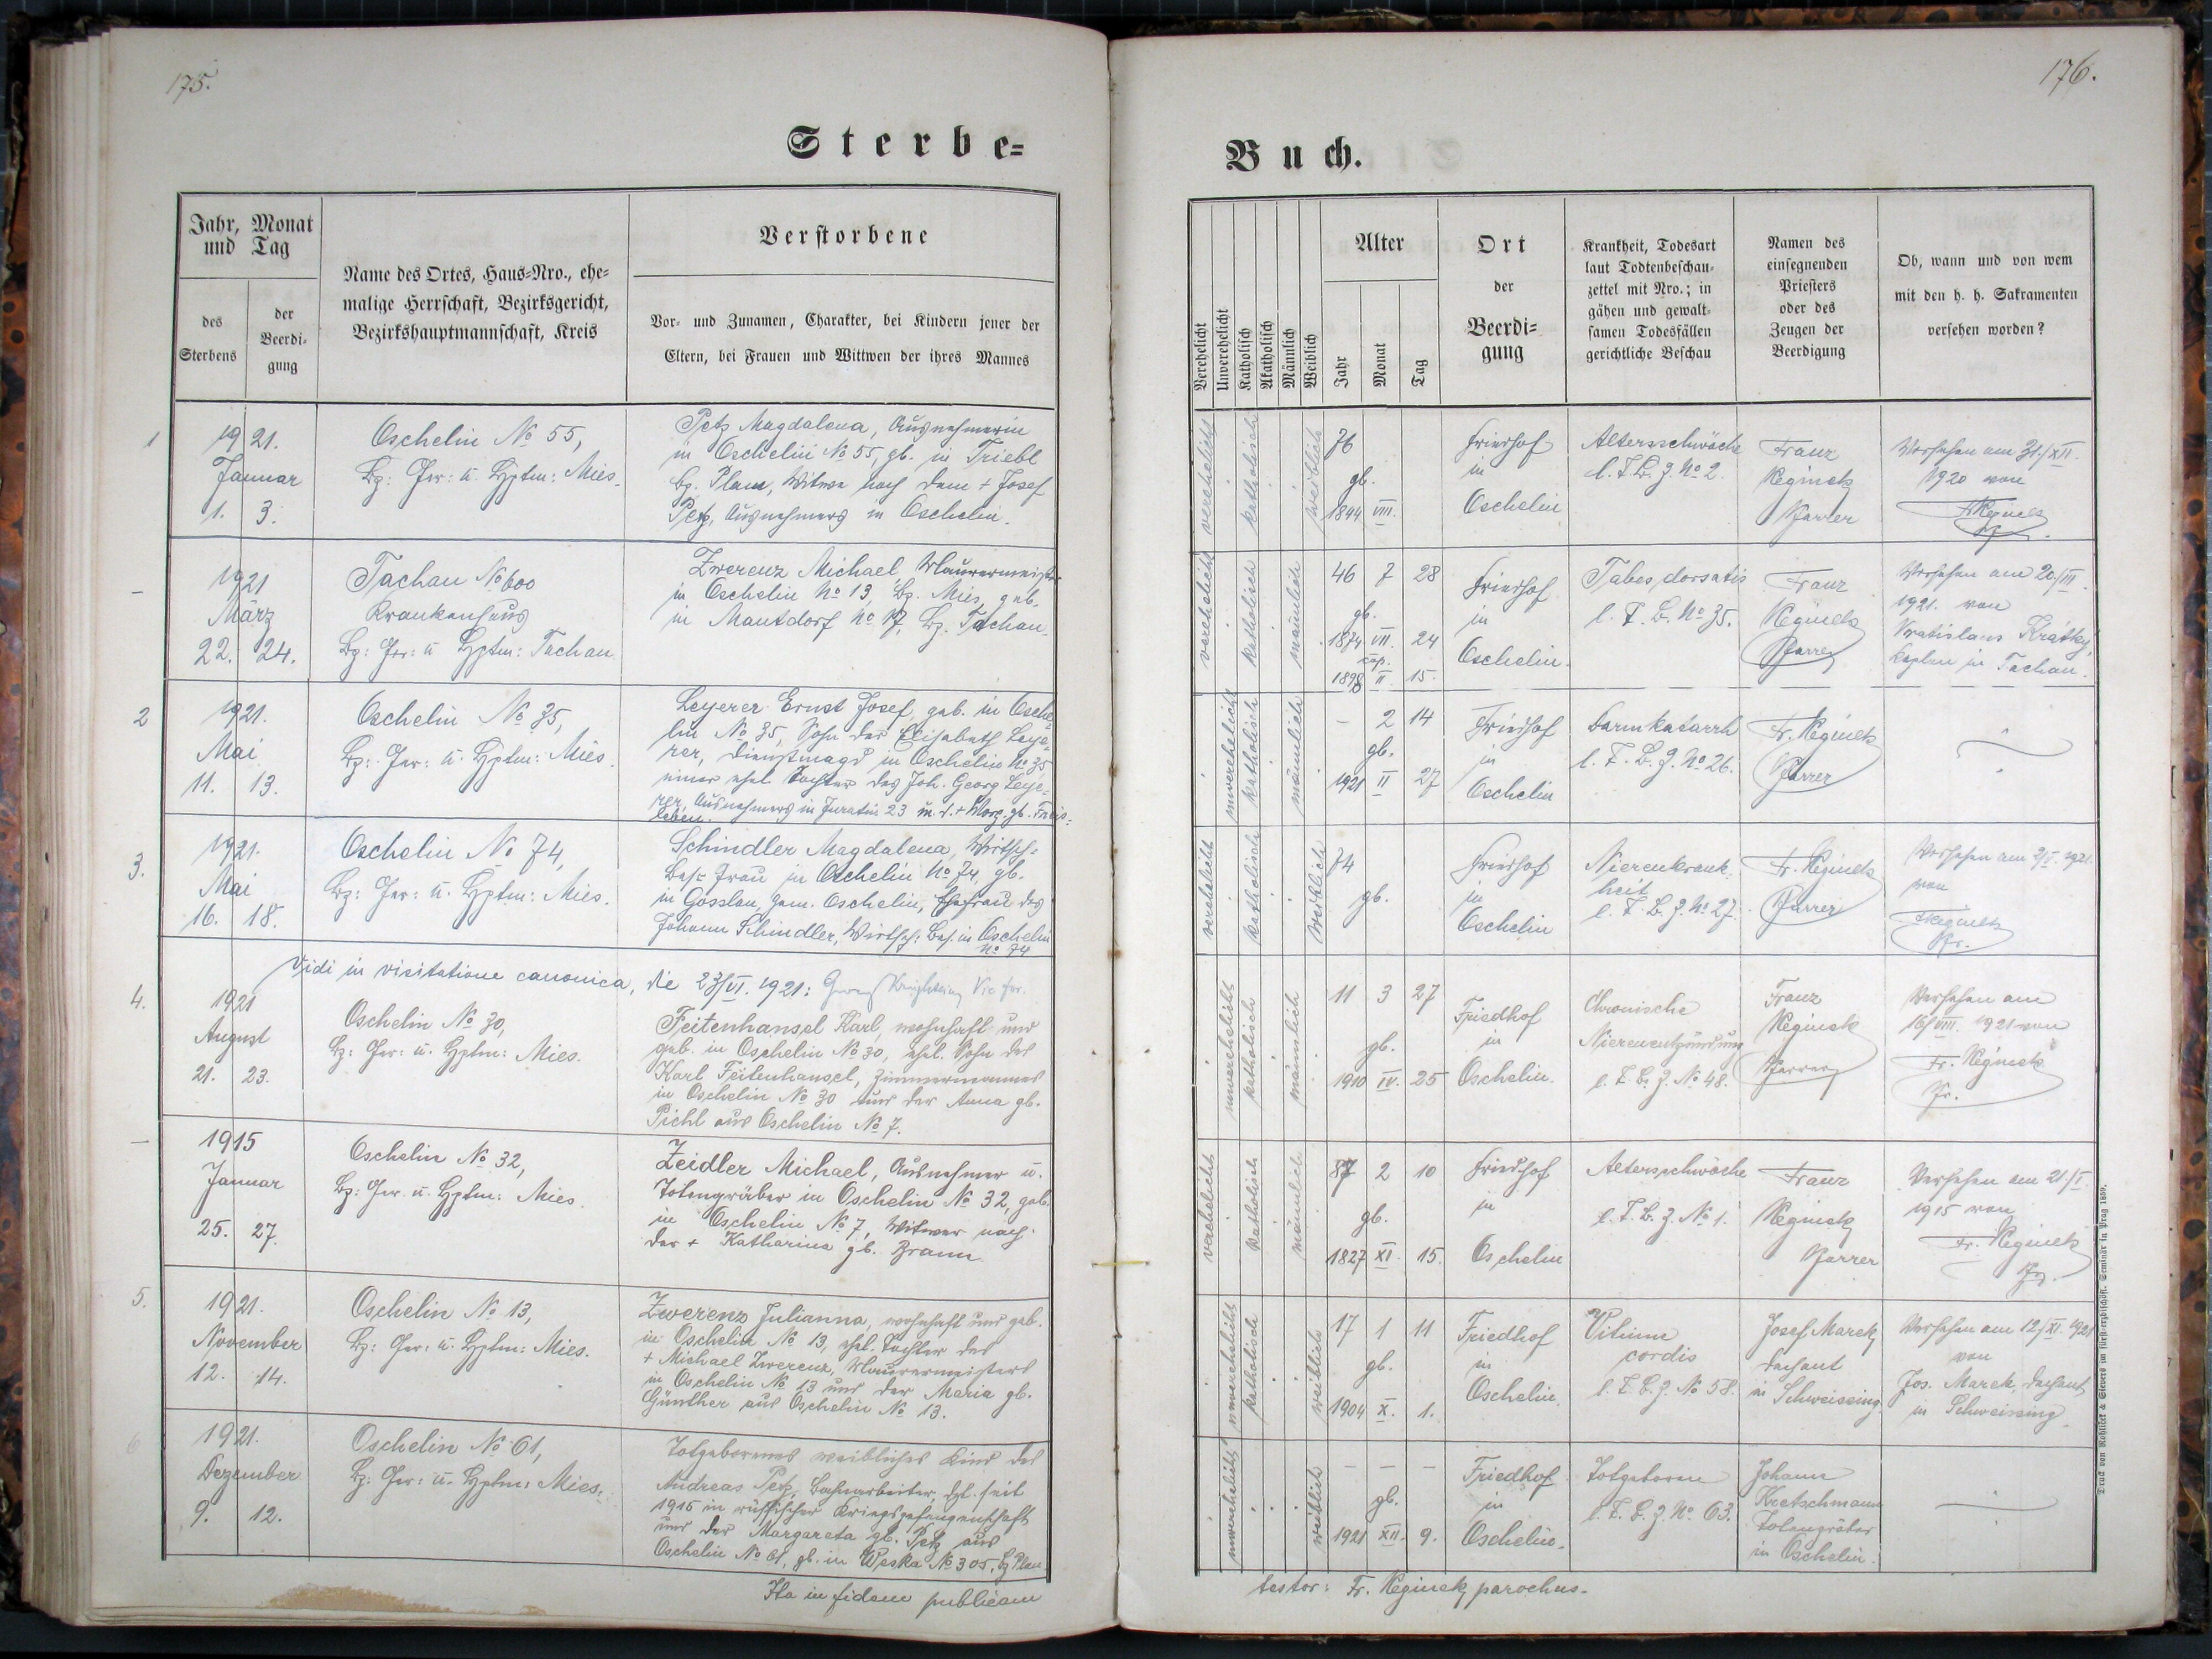 175.
Sterbe=
Jahr, Monat
und Tag
des
Sterbens
der
Beerdi=
gung
Name des Ortes, Haus=Nro., ehe=
malige Herrschaft, Bezirksgericht,
Bezirkshauptmannschaft, Kreis
Verstorbene
Vor= und Zunamen, Charakter, bei Kindern jener der
Eltern, bei Frauen und Wittwen der ihres Mannes
1
1921.
Januar
1. 3.
Oschelin № 55,
Bz: Ger: u. Hptm: Mies.
Petz Magdalena, Ausnehmerin
in Oschelin № 55, gb. in Triebl
bz. Plan, Witwe nach dem + Josef
Petz, Ausnehmers in Oschelin.
–
1921
März
22. 24.
Tachau № 600
Krankenhaus
Bz: Ger: u. Hptm: Tachau
Zwerenz Michael, Maurermeister
in Oschelin № 13, Bz. Mies, geb.
in Mautdorf № 17, Bz. Tachau.
2
1921.
Mai
11. 13.
Oschelin № 35,
Bz: Ger: u. Hptm: Mies.
Leyerer Ernst Josef, geb. in Osche=
lin № 35, Sohn der Elisabeth Leye=
rer, Dienstmagd in Oschelin № 35,
einer ehel. Tochter des Joh. Georg Leye=
rer, Ausnehmers in Juratin 23 u. d. + Marg. gb. Freis=
leben.
3.
1921.
Mai
16. 18.
Oschelin № 74,
Bz: Ger: u. Hptm: Mies.
Schindler Magdalena, Wirtsch=
Bes= Frau in Oschelin № 74, gb.
in Gosslau, Gem. Oschelin, Ehefrau des
Johann Schindler, Wirtsch: Bes. in Oschelin
№ 74
Vidi in visitatione canonica, die 23/VI. 1921:
4.
1921
August
21. 23.
Oschelin № 30,
Bz: Ger: u. Hptm: Mies.
Feitenhansel Karl, wohnhaft und
geb. in Oschelin № 30, ehel. Sohn des
Karl Feitenhansel, Zimmermannes
in Oschelin № 30 und der Anna gb.
Pichl aus Oschelin № 7.
–
1915
Januar
25. 27.
Oschelin № 32,
Bz: Ger. u. Hptm: Mies.
Zeidler Michael, Ausnehmer u.
Totengräber in Oschelin № 32, geb.
in Oschelin № 7, Witwer nach
der + Katharina gb. Braun.
5.
1921.
November
12. 14.
Oschelin № 13,
Bz: Ger: u. Hptm: Mies.
Zwerenz Julianna, wohnhaft und geb.
in Oschelin № 13, ehel. Tochter des
+ Michael Zwerenz, Maurermeisters
in Oschelin № 13 und der Maria gb.
Günther aus Oschelin № 13.
6
1921.
Dezember
9. 12.
Oschelin № 61,
Bz: Ger: u. Hptm: Mies.
Totgeborenes weibliches Kind des
Andreas Petz, Bahnarbeiter, dzt. seit
1915 in russischer Kriegsgefangenschaft
und der Margareta gb. Petz aus
Oschelin № 61, gb. in Weska № 305, Bz Plan
Ita in fidem publicam
176.
Buch.
Verehelicht
Unverehelicht
Katholisch
Akatholisch
Männlich
Weiblich
Alter
Jahr
Monat
Tag
Ort
der
Beerdi=
gung
Krankheit, Todesart
laut Todtenbeschau=
zettel mit Nro.; in
gähen und gewalt=
samen Todesfällen
gerichtliche Beschau
Namen des
einsegnenden
Priesters
oder des
Zeugen der
Beerdigung
Ob, wann und von wem
mit den h. h. Sakramenten
versehen worden?
verehelicht
katholisch
weiblich
76
gb.
1844 VIII.
Friedhof
in
Oschelin
Altersschwäche
l. T. B. Z. № 2.
Franz
Reginek
Pfarrer
Versehen am 31./XII.
1920 von
Fr. Reginek
Pfr.
verehelicht
katholisch
männlich
46 7 28
gb.
1874 VII. 24
cop.
1898 II. 15.
Friedhof
in
Oschelin.
Tabes dorsatis
l. T. B. № 35.
Franz
Reginek
Pfarrer
Versehen am 20./III.
1921. von
Vratislaus Krátký,
Kaplan in Tachau.
unverehelicht
katholisch
männlich
– 2 14
gb.
1921 II 27
Friedhof
in
Oschelin
Darmkatarrh
l. T. B. Z. № 26.
Fr. Reginek
Pfarrer
verehelicht
katholisch
weiblich
74
gb.
Friedhof
in
Oschelin
Nierenkrank=
heit
l. T. B. Z. № 27.
Fr. Reginek
Pfarrer
Versehen am 3/V. 1921.
von
Fr. Reginek
Pfr.
unverehelicht
katholisch
männlich
11 3 27
gb.
1910 IV. 25
Friedhof
in
Oschelin.
Chronische
Nierenentzündung
l. T. B. Z. № 48.
Franz
Reginek
Pfarrer
Versehen am
16/VIII. 1921 von
Fr. Reginek
Pfr.
verehelicht
katholisch
männlich
87 2 10
gb.
1827 XI. 15.
Friedhof
in
Oschelin
Altersschwäche
l. T. B. Z. № 1.
Franz
Reginek
Pfarrer
Versehen am 21./I.
1915 von
Fr. Reginek
Pfr.
unverehelicht
katholisch
weiblich
17 1 11
gb.
1904 X. 1.
Friedhof
in
Oschelin.
Vitium
cordis
l. T. B. Z. № 58.
Josef Marek,
Dechant
in Schweissing.
Versehen am 12./XI. 1921
von
Jos. Marek, Dechant
in Schweissing.
unverehelicht
weiblich
– – –
gb.
1921 XII. 9.
Friedhof
in
Oschelin.
Totgeboren
l. T. B. Z. № 63.
Johann
Kretschmann
Totengräber
in Oschelin.
testor: Fr. Reginek, parochus.
Druck von Rohliček & Sievers im fürsterzbischöfl. Seminär in Prag 1859.